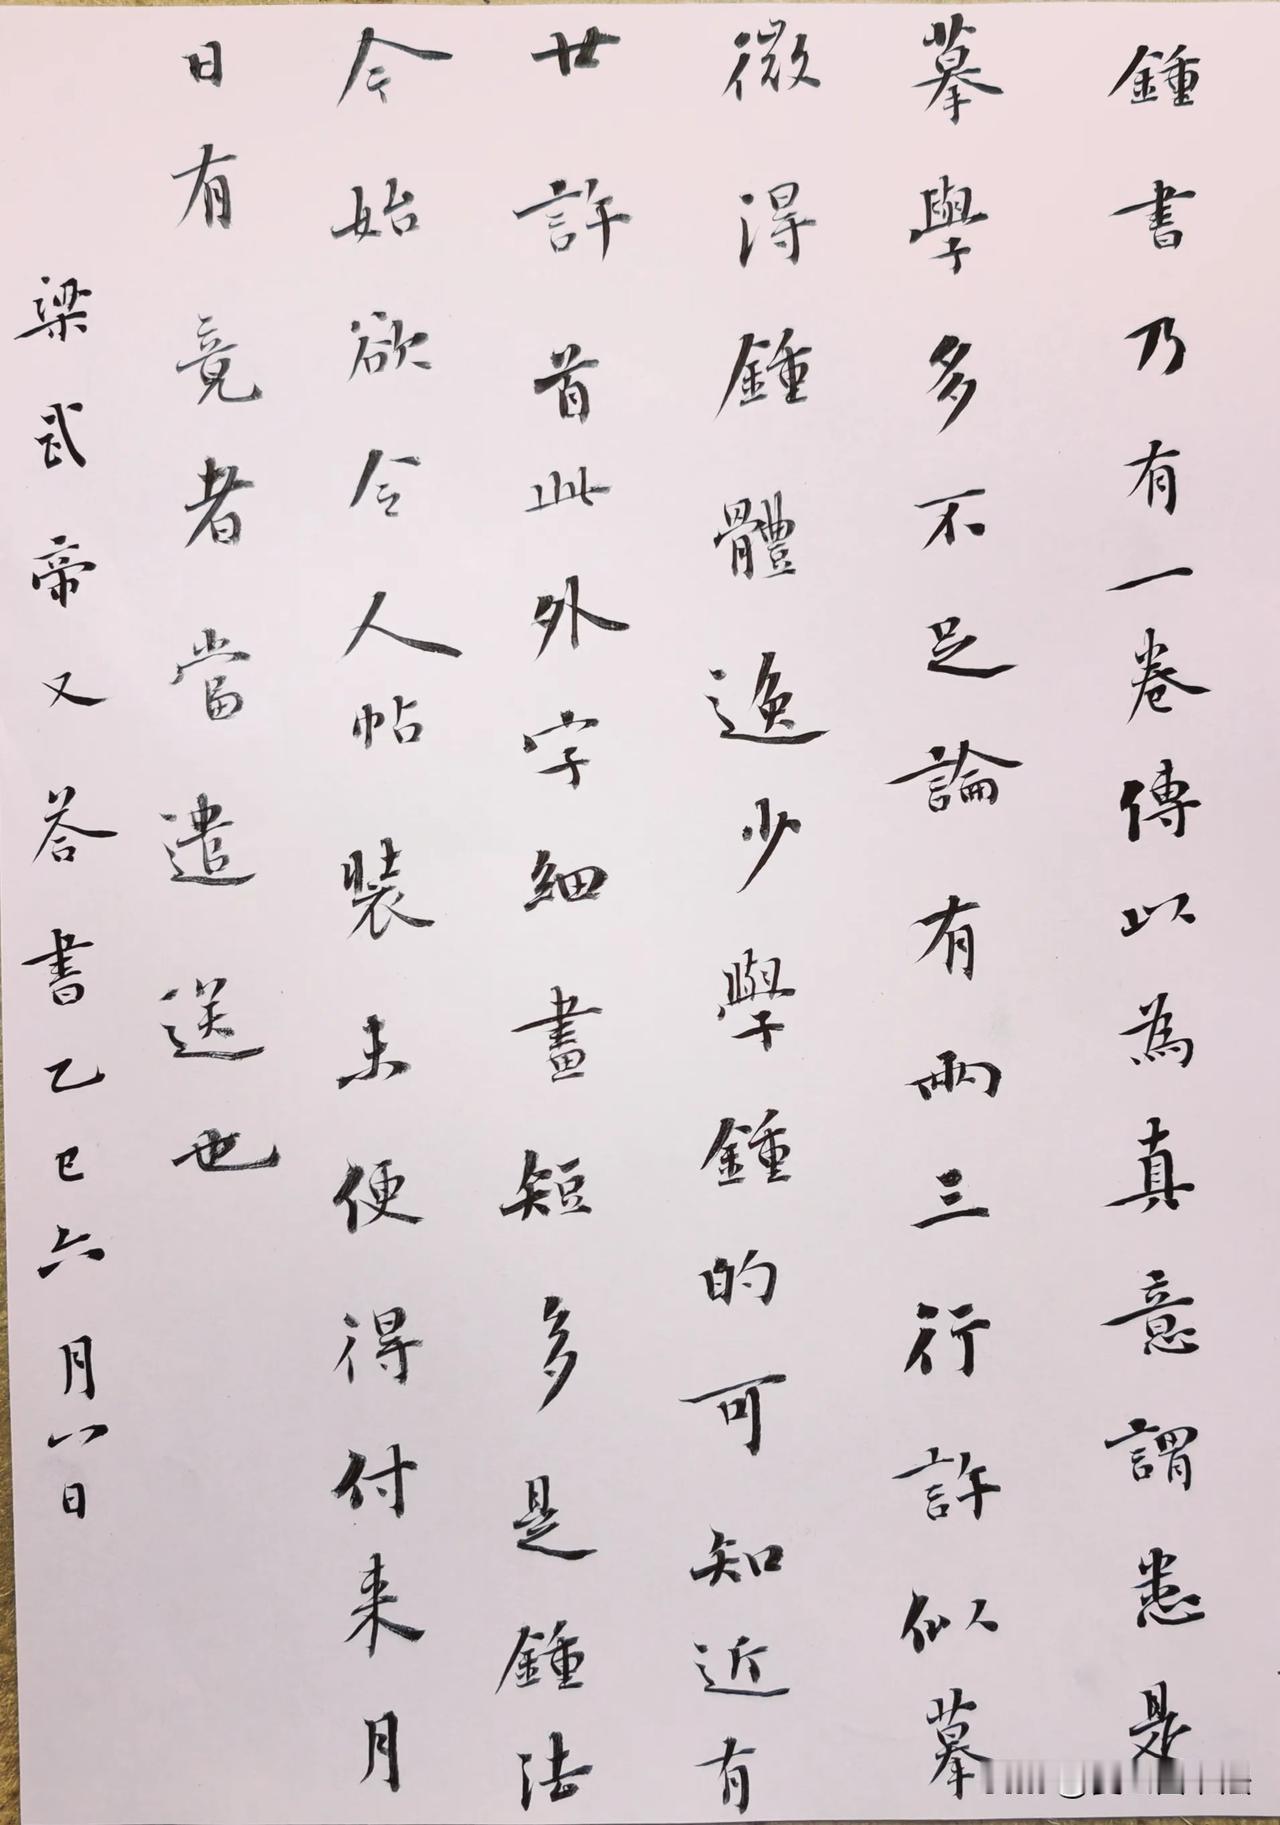 鍾書乃有一卷傳以為真意謂悉是
摹學多不足論有兩三行許似摹
微得鍾體逸少學鍾的可知近有
廿許首此外字細畫短多是鍾法
今始欲令人帖裝未便得付来月
日有竟者當遣送也
梁武帝又荅書乙巳六月八日